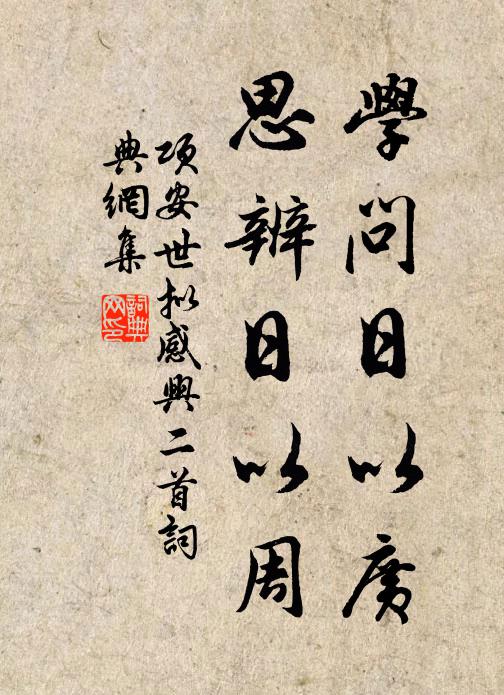 學問日以廣
思辨日以周
項安世拟感興二首詞
典網集
詞典
网印